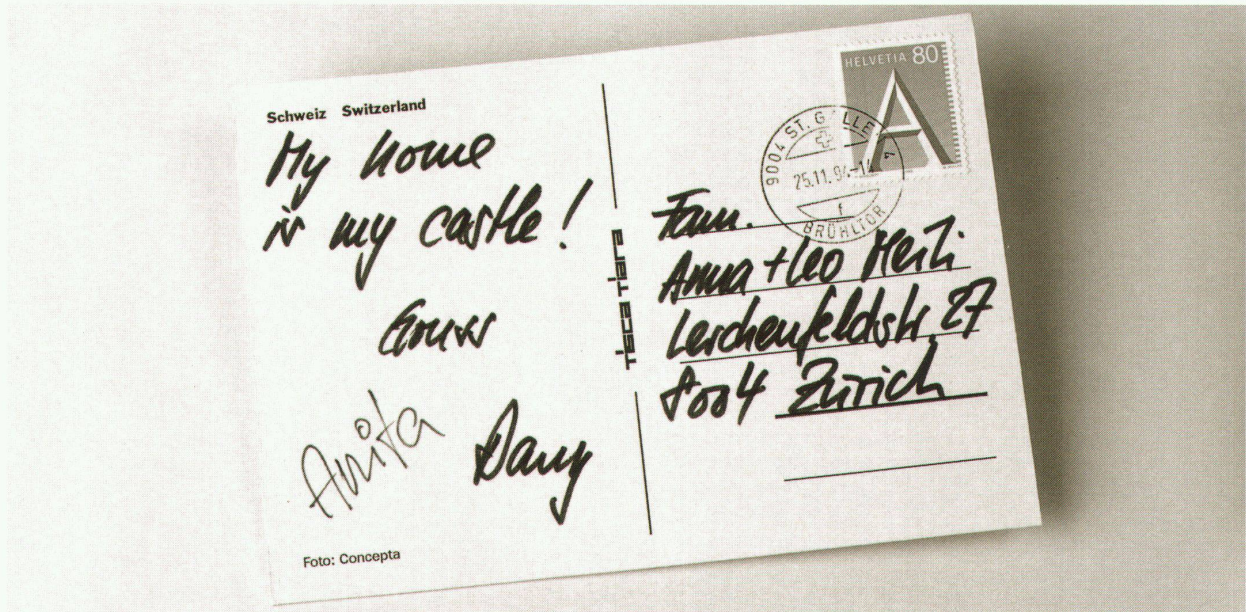 Schweiz Switzerland
My home
is my castle!
Gruss
Anita
Dany
Foto: Concepta
tisca tiara
HELVETIA 80
A
9004 ST. GALLEN 4
25.11.94-14
f
BRÜHLTOR
Fam.
Anna + Leo
Lerchenfeldstr. 27
8004 Zürich